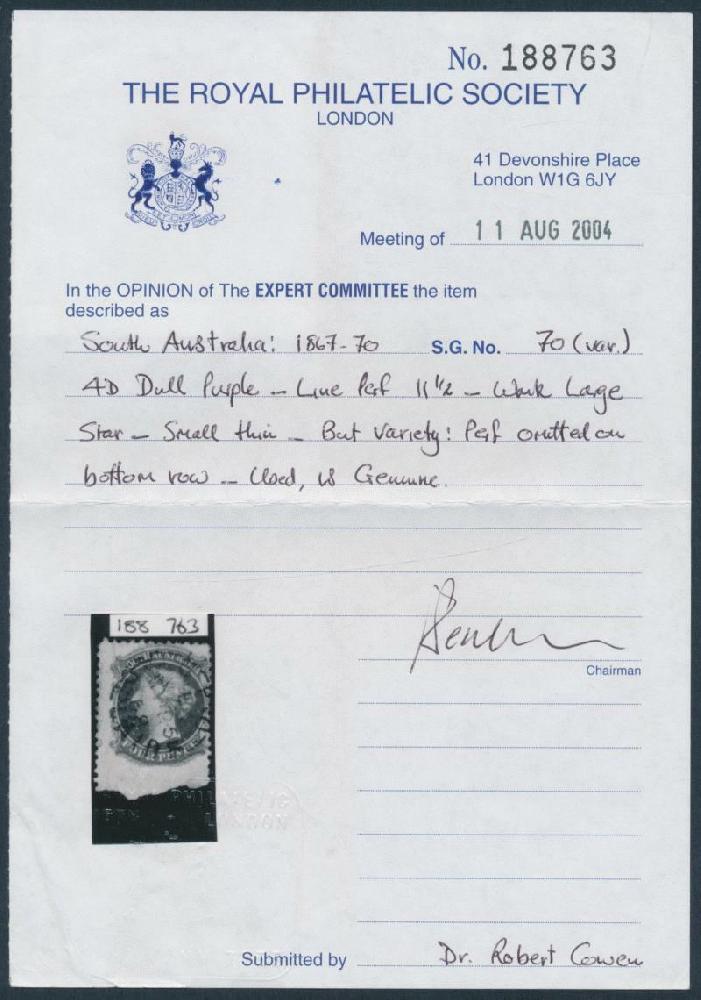 No. 188763
THE ROYAL PHILATELIC SOCIETY
LONDON
41 Devonshire Place
London W1G 6JY
Meeting of 11 AUG 2004
In the OPINION of The EXPERT COMMITTEE the item
described as
South Australia: 1867-70 S.G. No. 70 (var.)
4D Dull Purple - Line Perf 11½ - Wmk Large
Star - Small thin - But Variety: Perf omitted on
bottom row - Used, is Genuine.
188 763
Chairman
LONDON
Submitted by Dr. Robert Cowen